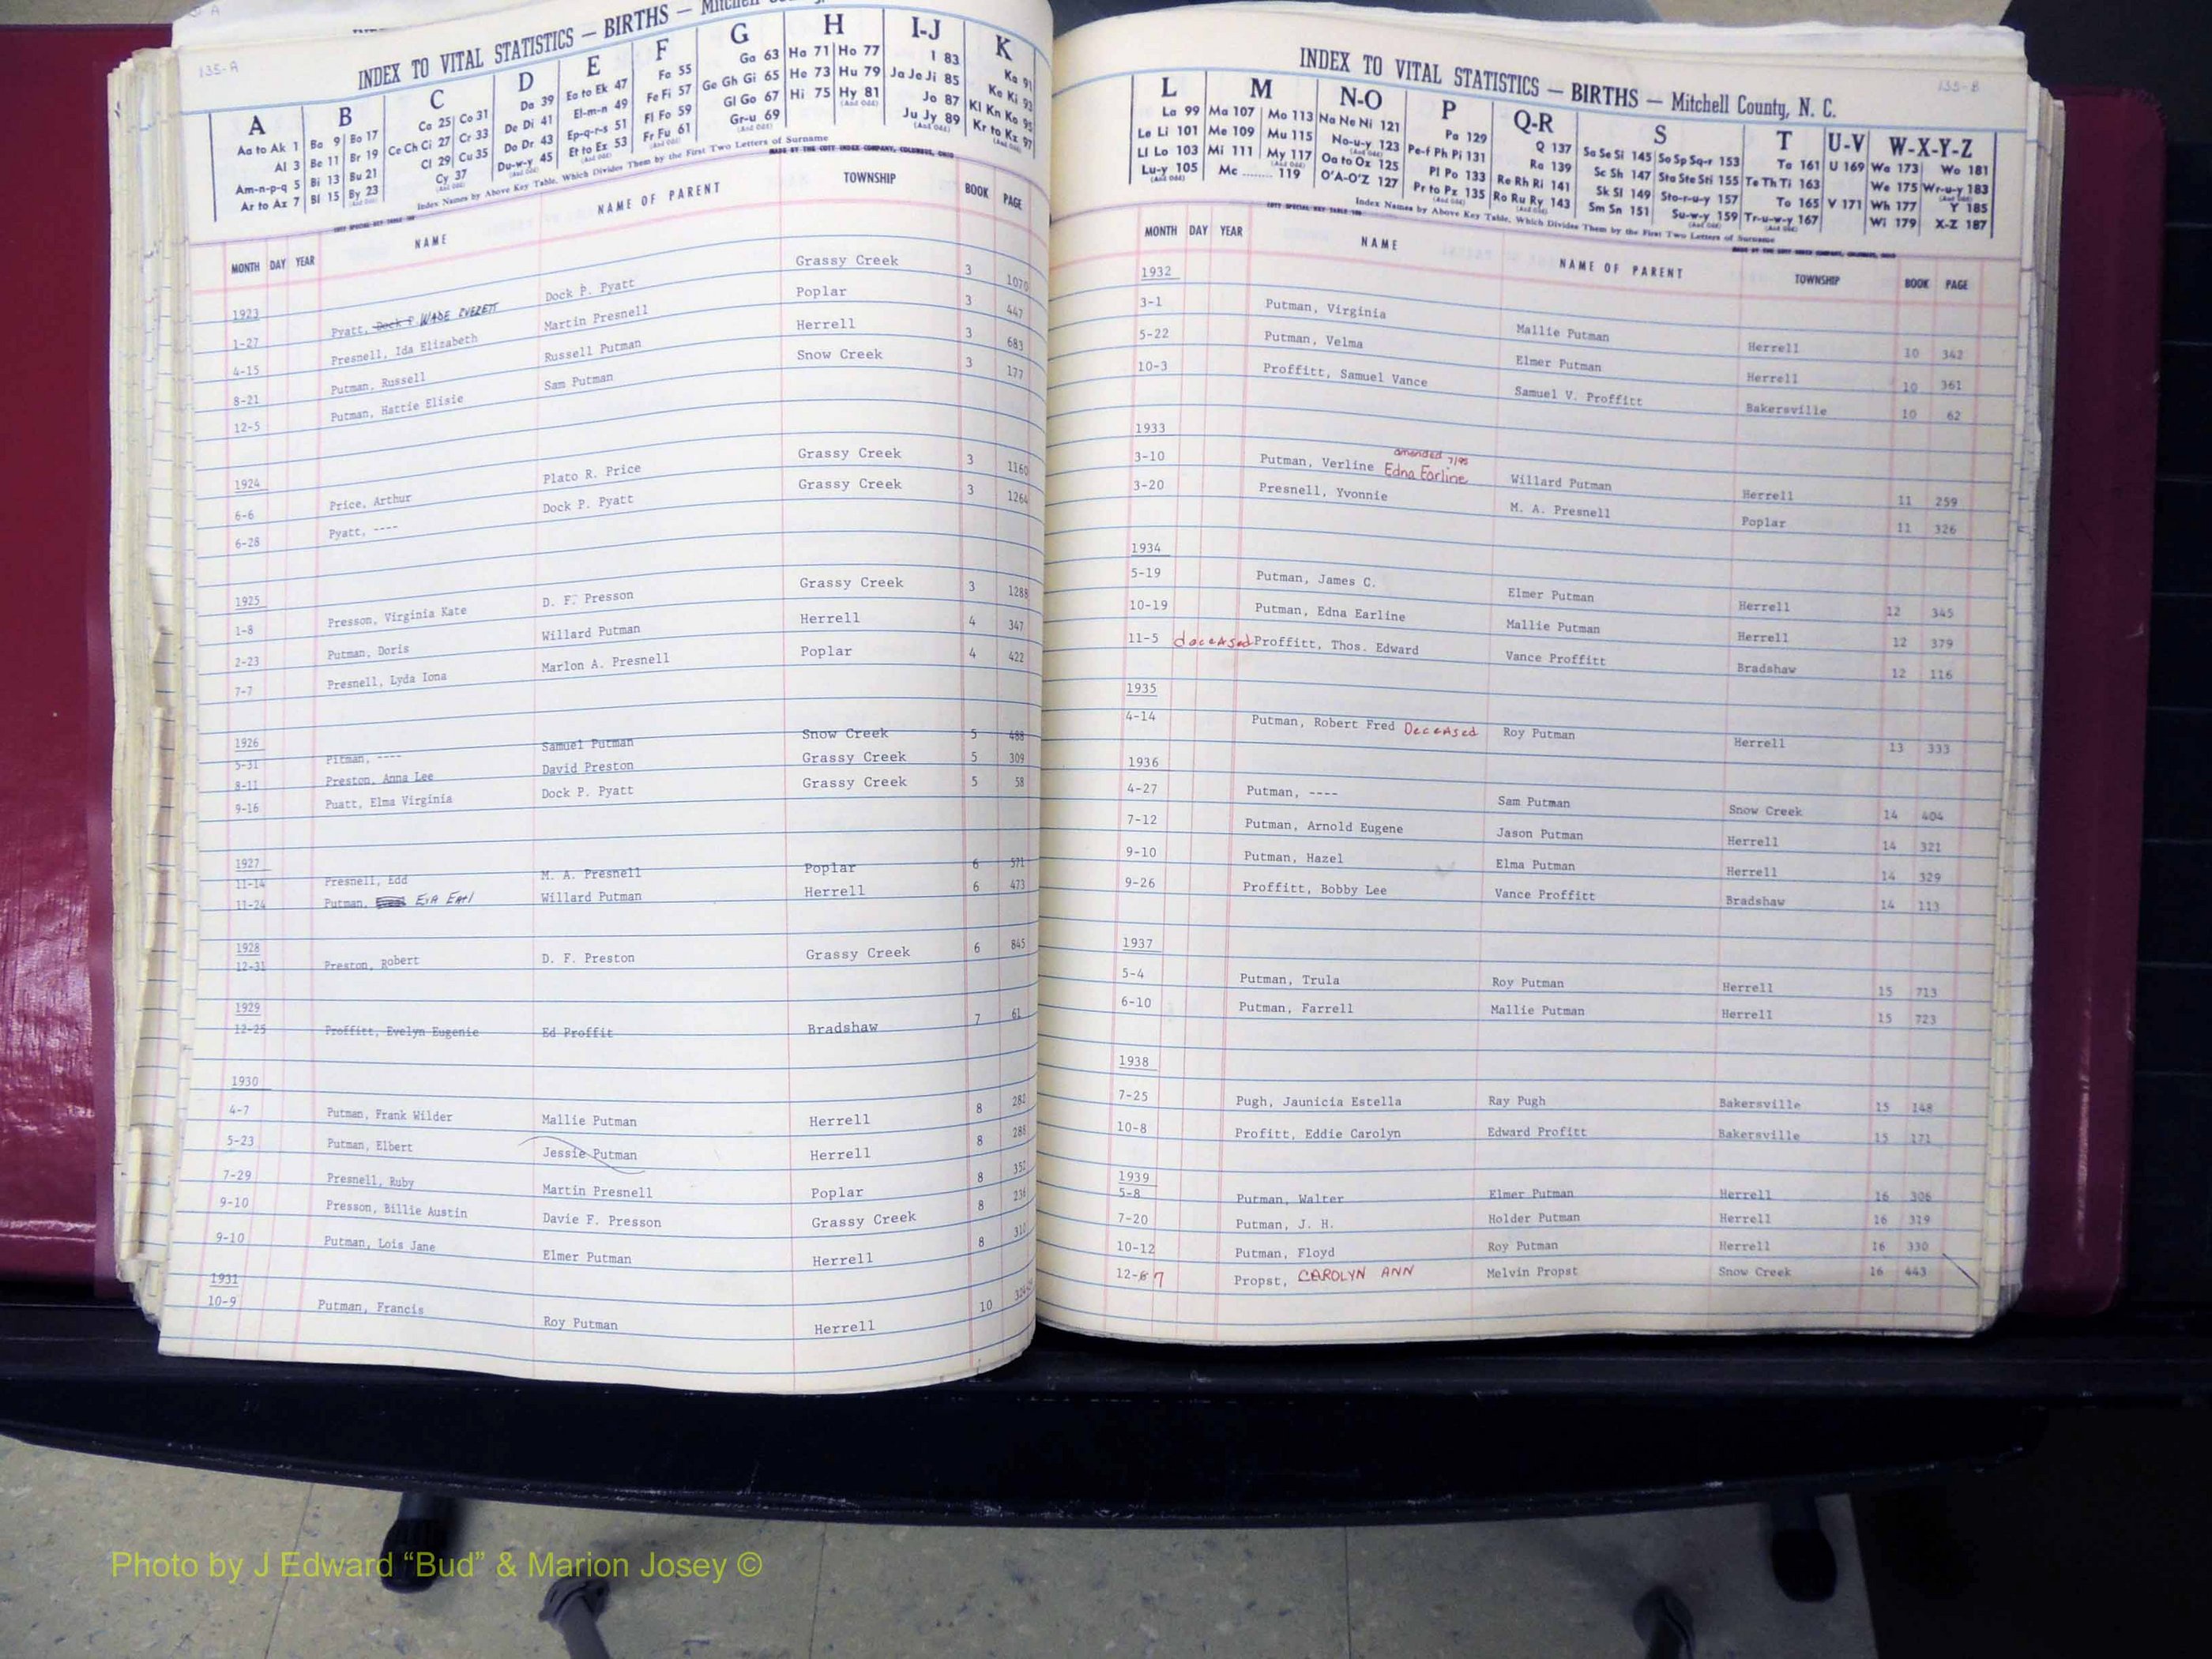 135-A
INDEX TO VITAL STATISTICS — BIRTHS — Mitchell
A B C D E F G H I-J K
Aa to Ak 1 Ba 9 Bo 17 Ca 25 Co 31 Da 39 Ea to Ek 47 Fa 55 Ga 63 Ha 71 Ho 77 I 83 Ka 91
Al 3 Be 11 Br 19 Ce Ch Ci 27 Cr 33 De Di 41 El-m-n 49 Fe Fi 57 Ge Gh Gi 65 He 73 Hu 79 Ja Je Ji 85 Ke Ki 93
Am-n-p-q 5 Bi 13 Bu 21 Cl 29 Cu 35 Do Dr 43 Ep-q-r-s 51 Fl Fo 59 Gl Go 67 Hi 75 Hy 81 Jo 87 Kl Kn Ko 95
Ar to Az 7 Bl 15 By 23 Cy 37 Du-w-y 45 Et to Ez 53 Fr Fu 61 Gr-u 69 Ju Jy 89 Kr to Kz 97
Index Names by Above Key Table, Which Divides Them by the First Two Letters of Surname
MADE BY THE COTT INDEX COMPANY, COLUMBUS, OHIO
MONTH DAY YEAR NAME NAME OF PARENT TOWNSHIP BOOK PAGE
1923
1-27 Pyatt, Dock P. WADE EVERETT Dock P. Pyatt Grassy Creek 3 1070
4-15 Presnell, Ida Elizabeth Martin Presnell Poplar 3 447
8-21 Putman, Russell Russell Putman Herrell 3 683
12-5 Putman, Hattie Elisie Sam Putman Snow Creek 3 177
1924
6-6 Price, Arthur Plato R. Price Grassy Creek 3 1160
6-28 Pyatt, ---- Dock P. Pyatt Grassy Creek 3 1264
1925
1-8 Presson, Virginia Kate D. F. Presson Grassy Creek 3 1288
2-23 Putman, Doris Willard Putman Herrell 4 347
7-7 Presnell, Lyda Iona Marlon A. Presnell Poplar 4 422
1926
5-31 Pitman, ---- Samuel Putman Snow Creek 5 488
8-11 Preston, Anna Lee David Preston Grassy Creek 5 309
9-16 Puatt, Elma Virginia Dock P. Pyatt Grassy Creek 5 58
1927
11-14 Presnell, Edd M. A. Presnell Poplar 6 571
11-24 Putman, EVA EARl Willard Putman Herrell 6 473
1928
12-31 Preston, Robert D. F. Preston Grassy Creek 6 845
1929
12-25 Proffitt, Evelyn Eugenie Ed Proffit Bradshaw 7 61
1930
4-7 Putman, Frank Wilder Mallie Putman Herrell 8 282
5-23 Putman, Elbert Jessie Putman Herrell 8 288
7-29 Presnell, Ruby Martin Presnell Poplar 8 352
9-10 Presson, Billie Austin Davie F. Presson Grassy Creek 8 236
9-10 Putman, Lois Jane Elmer Putman Herrell 8 310
1931
10-9 Putman, Francis Roy Putman Herrell 10
135-B
INDEX TO VITAL STATISTICS — BIRTHS — Mitchell County, N. C.
L M N-O P Q-R S T U-V W-X-Y-Z
La 99 Ma 107 Mo 113 Na Ne Ni 121 Pa 129 Q 137 Sa Se Si 145 So Sp Sq-r 153 Ta 161 U 169 Wa 173 Wo 181
Le Li 101 Me 109 Mu 115 No-u-y 123 Pe-f Ph Pi 131 Ra 139 Sc Sh 147 Sta Ste Sti 155 Te Th Ti 163 We 175 Wr-u-y 183
Ll Lo 103 Mi 111 My 117 Oa to Ox 125 Pl Po 133 Re Rh Ri 141 Sk Sl 149 Sto-r-u-y 157 To 165 V 171 Wh 177 Y 185
Lu-y 105 Mc ........ 119 O'A-O'Z 127 Pr to Pz 135 Ro Ru Ry 143 Sm Sn 151 Su-w-y 159 Tr-u-w-y 167 Wi 179 X-Z 187
Index Names by Above Key Table, Which Divides Them by the First Two Letters of Surname
MONTH DAY YEAR NAME NAME OF PARENT TOWNSHIP BOOK PAGE
1932
3-1 Putman, Virginia Mallie Putman Herrell 10 342
5-22 Putman, Velma Elmer Putman Herrell 10 361
10-3 Proffitt, Samuel Vance Samuel V. Proffitt Bakersville 10 62
1933
amended 7/95
3-10 Putman, Verline Edna Earline Willard Putman Herrell 11 259
3-20 Presnell, Yvonnie M. A. Presnell Poplar 11 326
1934
5-19 Putman, James C. Elmer Putman Herrell 12 345
10-19 Putman, Edna Earline Mallie Putman Herrell 12 379
11-5 deceased Proffitt, Thos. Edward Vance Proffitt Bradshaw 12 116
1935
4-14 Putman, Robert Fred Deceased Roy Putman Herrell 13 333
1936
4-27 Putman, ---- Sam Putman Snow Creek 14 404
7-12 Putman, Arnold Eugene Jason Putman Herrell 14 321
9-10 Putman, Hazel Elma Putman Herrell 14 329
9-26 Proffitt, Bobby Lee Vance Proffitt Bradshaw 14 113
1937
5-4 Putman, Trula Roy Putman Herrell 15 713
6-10 Putman, Farrell Mallie Putman Herrell 15 723
1938
7-25 Pugh, Jaunicia Estella Ray Pugh Bakersville 15 148
10-8 Profitt, Eddie Carolyn Edward Profitt Bakersville 15 171
1939
5-8 Putman, Walter Elmer Putman Herrell 16 306
7-20 Putman, J. H. Holder Putman Herrell 16 319
10-12 Putman, Floyd Roy Putman Herrell 16 330
12-7 Propst, CAROLYN ANN Melvin Propst Snow Creek 16 443
Photo by J Edward “Bud” & Marion Josey ©